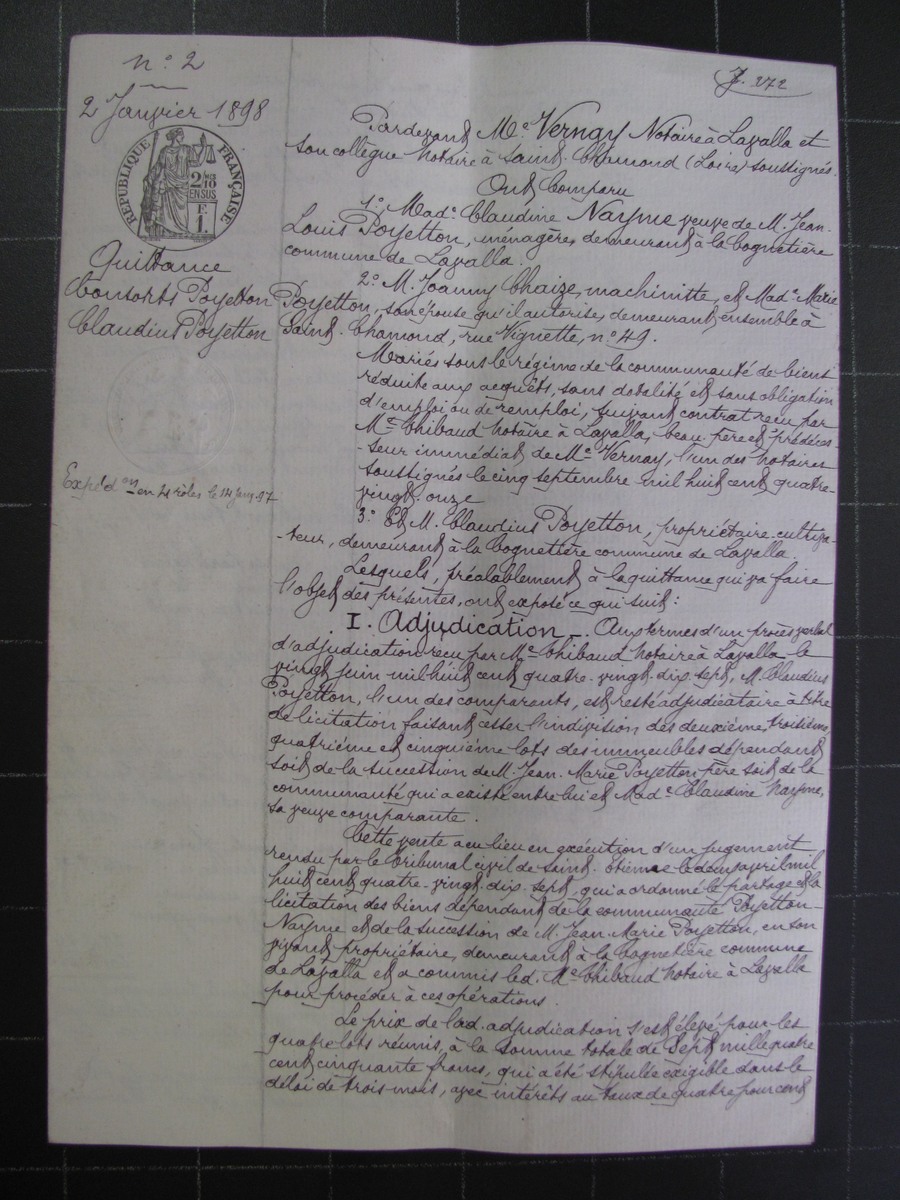 n° 2
2 Janvier 1898
RÉPUBLIQUE FRANÇAISE
2/10 EN SUS
F
1.
Quittance
Consorts Poyetton
Claudius Poyetton
Expéd on en 21 rôles le
J. 272
Pardevant Me Vernay Notaire à Lavalla et
son collègue notaire à Saint-Chamond (Loire) soussignés.
Ont Comparu
1°. Made Claudine Nayme veuve de M. Jean-
Louis Poyetton, ménagère, demeurant à la Cognetière
commune de Lavalla.
2° M. Joanny Chaize, machiniste, et Made Marie
Poyetton, son épouse qu'il autorise, demeurant ensemble à
Saint-Chamond, rue Vignette, n° 49.
Mariés sous le régime de la communauté de biens
réduite aux acquêts, sans dotalité et sans obligation
d'emploi ou de remploi, suivant contrat reçu par
Me Thibaud notaire à Lavalla, beau-père et prédéces
-seur immédiat de Me Vernay, l'un des notaires
soussignés le cinq septembre mil huit cent quatre-
vingt-onze
3° Et M. Claudius Poyetton, propriétaire-cultiva
-teur, demeurant à la Cognetière commune de Lavalla.
Lesquels, préalablement à la quittance qui va faire
l'objet des présentes, ont exposé ce qui suit:
I. Adjudication _ Aux termes d'un procès verbal
d'adjudication reçu par Me Thibaud notaire à Lavalla le
vingt juin mil huit cent quatre-vingt-dix-sept, M. Claudius
Poyetton, l'un des comparants, est resté adjudicataire à titre
de licitation faisant cesser l'indivision des deuxième, troisième,
quatrième et cinquième lots des immeubles dépendant
soit de la succession de M. Jean-Marie Poyetton père soit de la
communauté qui a existé entre lui et Made Claudine Nayme,
sa veuve comparante.
Cette vente a eu lieu en exécution d'un jugement
rendu par le tribunal civil de Saint-Étienne le deux avril mil
huit cent quatre-vingt-dix-sept, qui a ordonné le partage et la
licitation des biens dépendant de la communauté Poyetton-
Nayme et de la succession de M. Jean-Marie Poyetton, en son
vivant propriétaire, demeurant à la Cognetière commune
de Lavalla et a commis led. Me Thibaud notaire à Lavalla
pour procéder à ces opérations.
Le prix de lad. adjudication s'est élevé pour les
quatre lots réunis, à la somme totale de Sept mille quatre
cent cinquante francs, qui a été stipulée exigible dans le
délai de trois mois, avec intérêts au taux de quatre pour cent